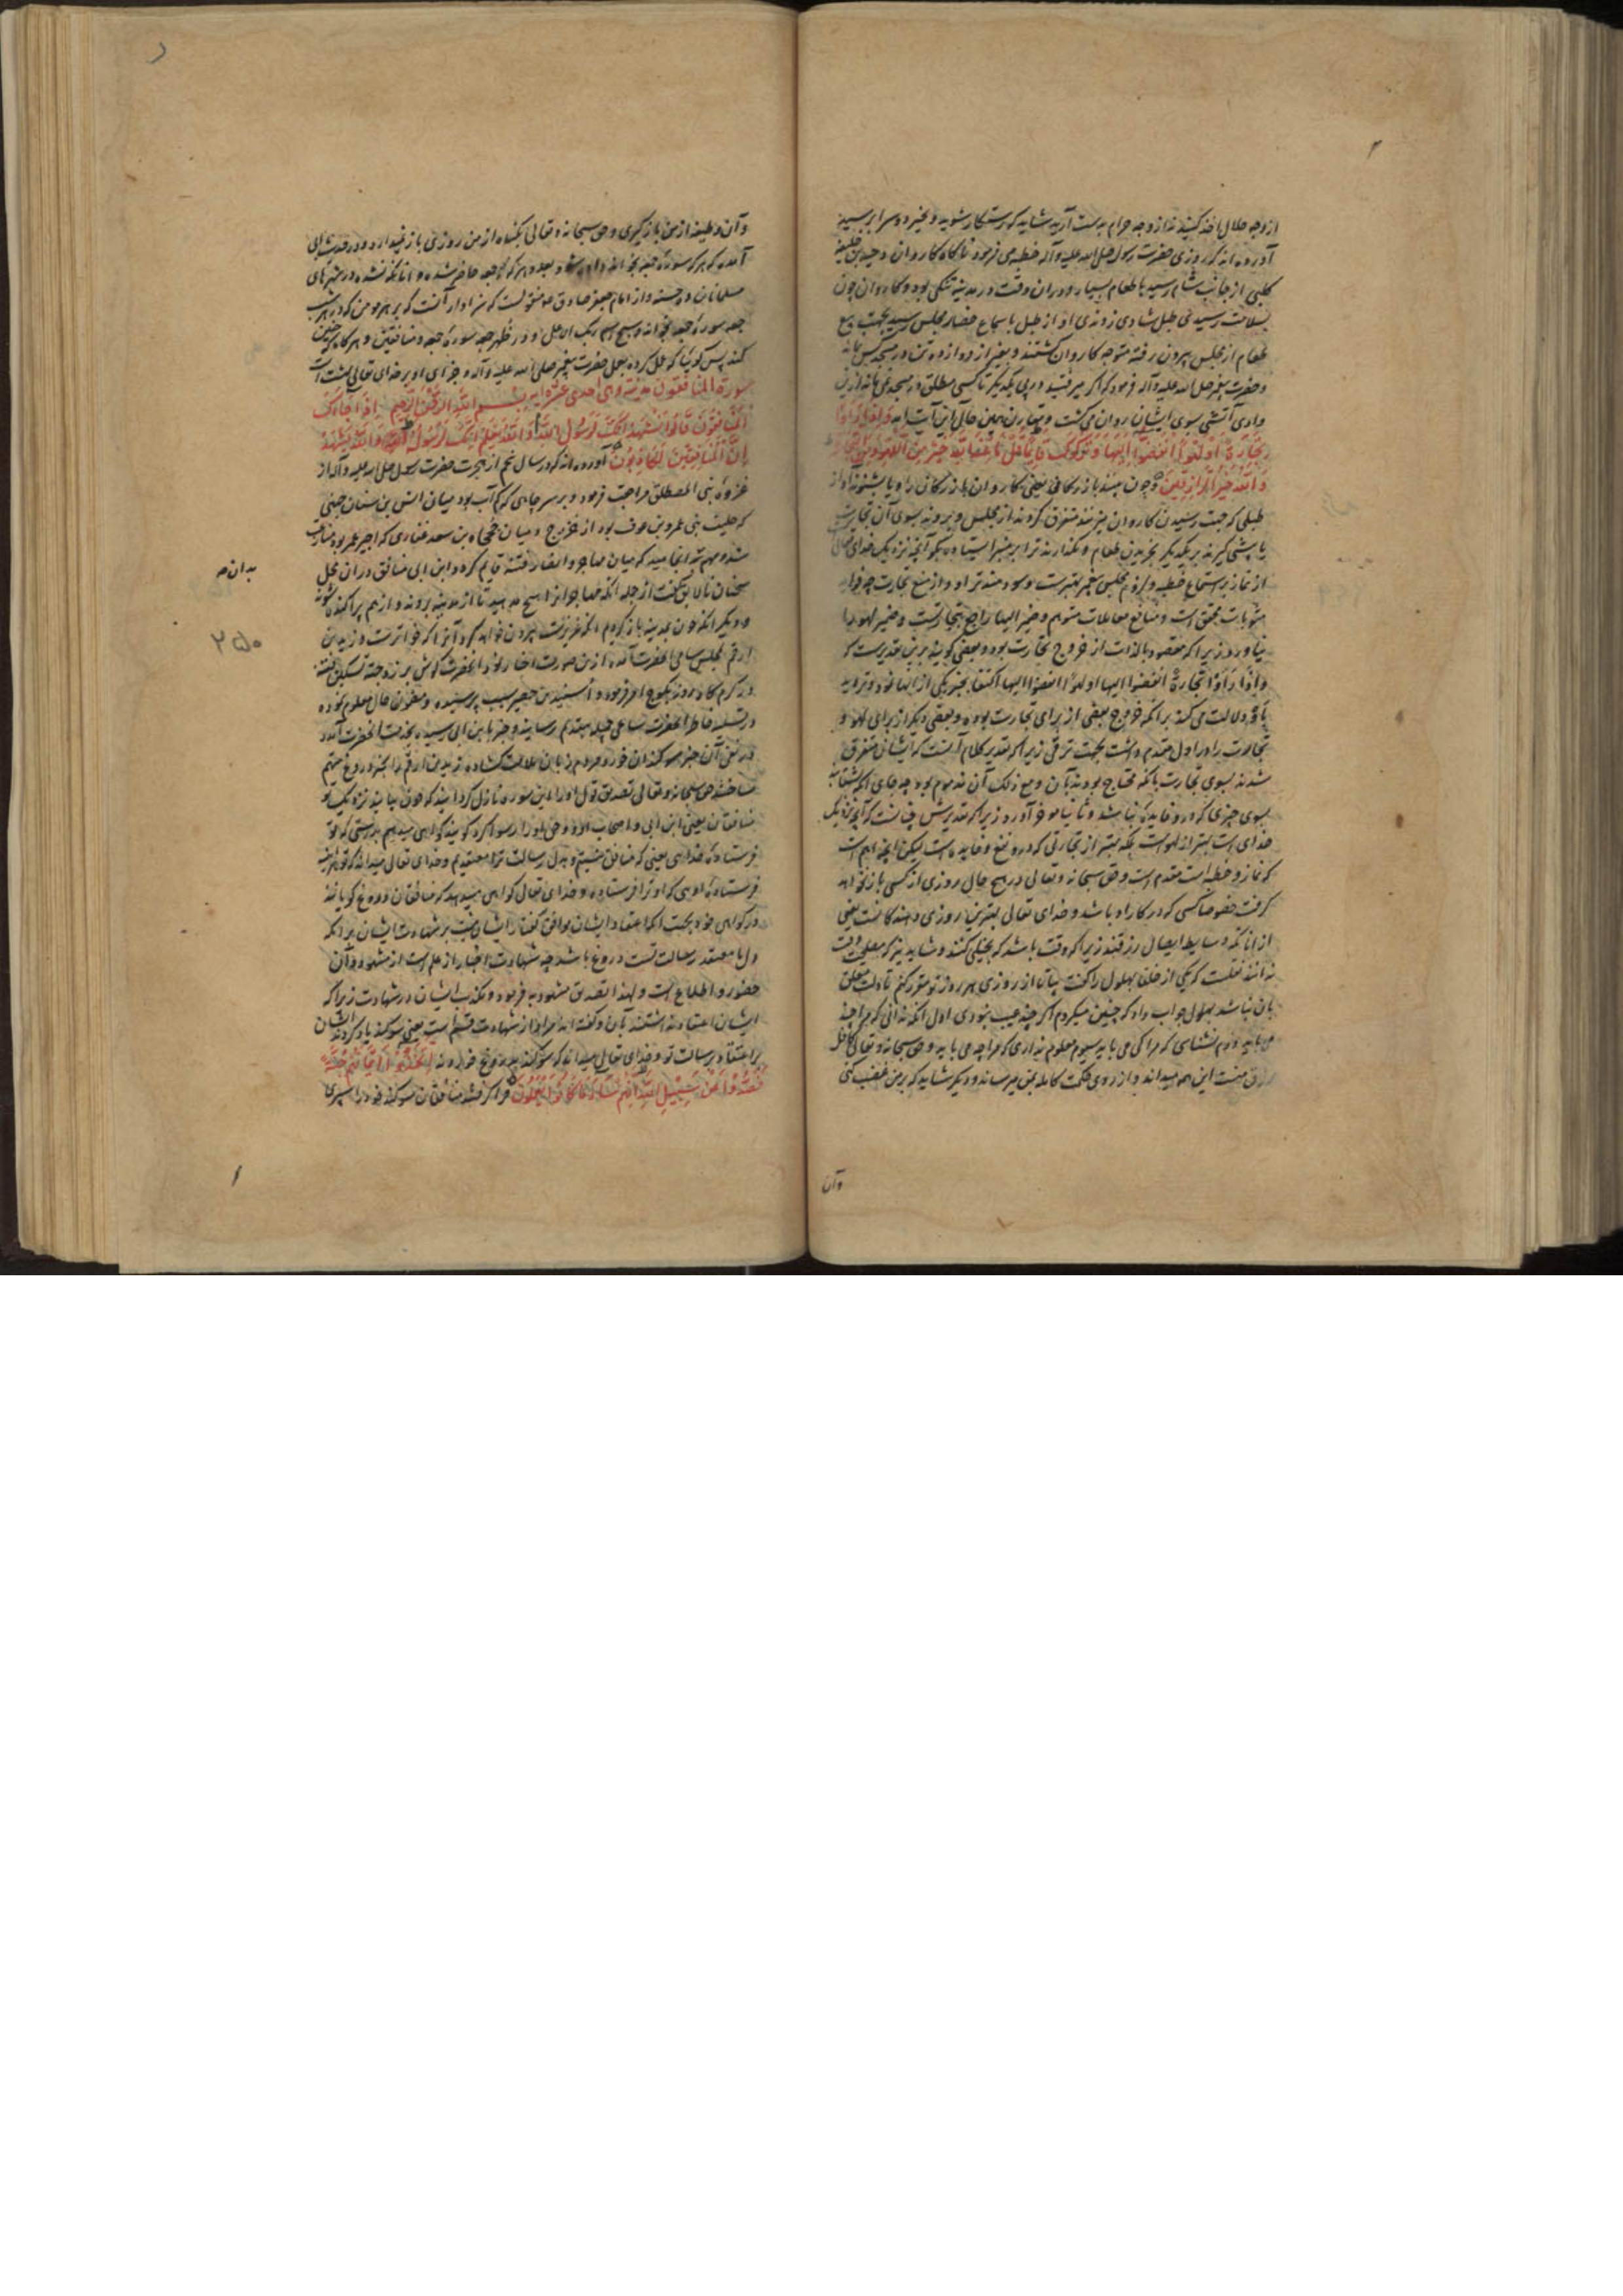 از وجه حلال اخذ کنید نه از وجه حرام بدست آرید شاید که رستگار شوید و بخیر دو سرا برسید
آورده اند که روزی حضرت رسول صلی الله علیه و آله خطبه می فرمود ناگاه کاروان دحیه بن خلیفه
کلبی از جانب شام رسید با طعام بسیار و در ان وقت در مدینه تنگی بود و کاروان چون
بسلامت رسیدی طبل شادی زوندی اواز طبل باسماع حضار مجلس رسید بجهت بیع
طعام از مجلس بیرون رفته متوجه کاروان گشتند و بغیر از دوازده تن در مسجد کس نماند
و حضرت پیغمبر صلی الله علیه و آله فرمود که اگر میرفتید در پی یکدیگر تا کسی مطلق در مسجد نمی ماند ازین
وادی آتشی بسوی ایشان روان می گشت و مقارن همین حال این آیت آمد وَإِذَا رَأَوْا
تِجَارَةً أَوْ لَهْوًا انْفَضُّوا إِلَيْهَا وَتَرَكُوكَ قَائِمًا قُلْ مَا عِنْدَ اللَّهِ خَيْرٌ مِنَ اللَّهْوِ وَمِنَ التِّجَارَةِ
وَاللَّهُ خَيْرُ الرَّازِقِينَ و چون بینند بازرگانی یعنی کاروان بازرگانی را و یا بشنوند اواز
طبلی که جهت رسیدن کاروان میزنند متفرق گردند از مجلس و بروند بسوی آن تجارت
یا پیشی گیرند بر یکدیگر بخریدن طعام و بگذارند ترا بر منبر ایستاده بگو آنچه نزدیک خدای تعالی
از نماز و استماع خطبه و لزوم مجلس پیغمبر بهترست و سودمندتر از لهو و از منبع تجارت چه فواید
مثوبات محقق است و منافع معاملات متوهم و ضمیر الیها راجع بتجارتست و ضمیر لهو را
نیاورد زیرا که مقصود بالذات از خروج تجارت بود و بعضی گویند برین تقدیرست که
و اذا رأوا تجارة انفضوا الیها او لهوا انفضوا الیها اکتفا بخبر یکی از انها نمود و تردید
باو دلالت می کند بر انکه خروج بعضی از برای تجارت بوده و بعضی دیگر از برای لهو و
تجارت را در اول مقدم داشت بجهت ترقی زیرا که تقدیر کلام آنست که ایشان متفرق
شدند بسوی تجارت با انکه محتاج بودند بآن و مع ذلک آن مذموم بود چه جای انکه بشتابند
بسوی چیزی که در و فایده نباشد و ثانیا موخر آورد زیرا که تقدیرش چنانست که آنچه نزدیک
خدای است بهتر از لهو است بلکه بهتر از تجارتی که در و نفع و فایده است لیکن آنچه اهم است
که نماز و خطبه است مقدم است و حق سبحانه و تعالی در هیچ حال روزی از کسی باز نخواهد
گرفت خصوصا کسی که در کار او باشد و خدای تعالی بهترین روزی دهندگانست یعنی
از انانکه وسایط ایصال رزقند زیرا که وقت باشد که بخیلی کنند و شاید نیز که مصلحت وقت
ندانند نقلست که یکی از خلفا بهلول را گفت بیا تا از روزی هر روز تو مقرر کنم تا دلت معلق
بان نباشد بهلول جواب داد که چنین میکردم اگر چند عیب نبودی اول انکه ندانی که مرا چه
می باید دوم نشناسی که مرا کی می باید سیوم معلوم نداری که مرا چه می باید و حق سبحانه و تعالی کافل
رزق منست این همه میداند و از روی حکمت کامله بمن میرساند و دیگر شاید که بر من غضب کنی
وآن
و آن وظیفه از من بازگیری و حق سبحانه و تعالی بگناه از من روزی باز نمیدارد و در حدیث
آمده که هر که سوره جمعه بخواند داده شود بعدد هر که بجمعه حاضر شده و انانکه نشده در شهرهای
مسلمانان ده حسنه و از امام جعفر صادق ع منقولست که سزاوار آنست که بر هر مومن که در هر شب
جمعه سوره جمعه بخواند و سبح اسم ربک الاعلی و در ظهر جمعه سوره جمعه و منافقین و هر گاه که چنین
کند پس گوییا که عمل کرده بعمل حضرت پیغمبر صلی الله علیه و آله و جزای او بر خدای تعالی بهشت است
سورة المنافقون مدنیة و هی احدی عشرة ایه بسم الله الرحمن الرحیم إِذَا جَاءَكَ
الْمُنَافِقُونَ قَالُوا نَشْهَدُ إِنَّكَ لَرَسُولُ اللَّهِ وَاللَّهُ يَعْلَمُ إِنَّكَ لَرَسُولُهُ وَاللَّهُ يَشْهَدُ
إِنَّ الْمُنَافِقِينَ لَكَاذِبُونَ آورده اند که در سال پنجم از هجرت حضرت رسول صلی الله علیه و آله از
غزوه بنی المصطلق مراجعت فرمود و بر سر چاهی که کم آب بود میان انس بن سنان جهنی
که حلیف بنی عمرو بن عوف بود از خزرج و میان جهجاه بن سعد غفاری که اجیر عمر بود منازعت
شد و مهم بدانجا رسید که میان مهاجر و انصار فتنه قایم گردد و ابن ابی منافق در ان محل
سخنان نالایق گفت از جمله انکه مهاجر انرا هیچ مدهید تا از مدینه بروند و از هم پراکنده شوند
و دیگر انکه چون بمدینه بازگردم انکه عزیزست بیرون خواهد کرد آنرا که خوارترست و زید بن
ارقم بمجلس سامی انحضرت آمده ازین صورت اخبار نمود
در گرم گاه روز بکوچ امر فرمود و اسید بن حضیر سبب پرسیده و مضمون حال معلوم نموده
در تسلیه خاطر انحضرت مساعی جمیله بتقدیم رسانید و خبر بابن ابی رسیده بخدمت انحضرت آمد و
در نفی آن خبر سوگندان خورد و مردم زبان ملامت گشاده زید بن ارقم را بخبر دروغ متهم
ساختند حق سبحانه و تعالی تصدیق قول او را این سوره نازل گردانید که چون بیایند نزدیک تو
منافقان یعنی ابن ابی و اصحاب او
فرستاده خدای یعنی که منافق نیستیم و بدل رسالت ترا معتقدیم و خدای تعالی میداند که تو هر اینه
فرستاده اویی که او ترا فرستاده و خدای تعالی گواهی میدهد که منافقان دروغ گویانند
در گواهی خود بجهت انکه اعتقاد ایشان موافق گفتار ایشان نیست
دل با معتقد رسالت تست دروغ باشد چه شهادت اخبار از علم است از شهود و آن
حضور و اطلاع است و لهذا تصدیق مشهود به فرمود و تکذیب ایشان در شهادت زیرا که
ایشان اعتقاد نداشتند بآن و گفته اند مراد از شهادت قسم است یعنی سوگند یاد کردند ایشان
بر اعتقاد برسالت تو و خدای تعالی میداند که سوگند بدروغ خوردند اتَّخَذُوا أَيْمَانَهُمْ جُنَّةً
فَصَدُّوا عَنْ سَبِيلِ اللَّهِ إِنَّهُمْ سَاءَ مَا كَانُوا يَعْمَلُونَ فرا گرفتند منافقان سوگند خود را سپری
۲۵۰